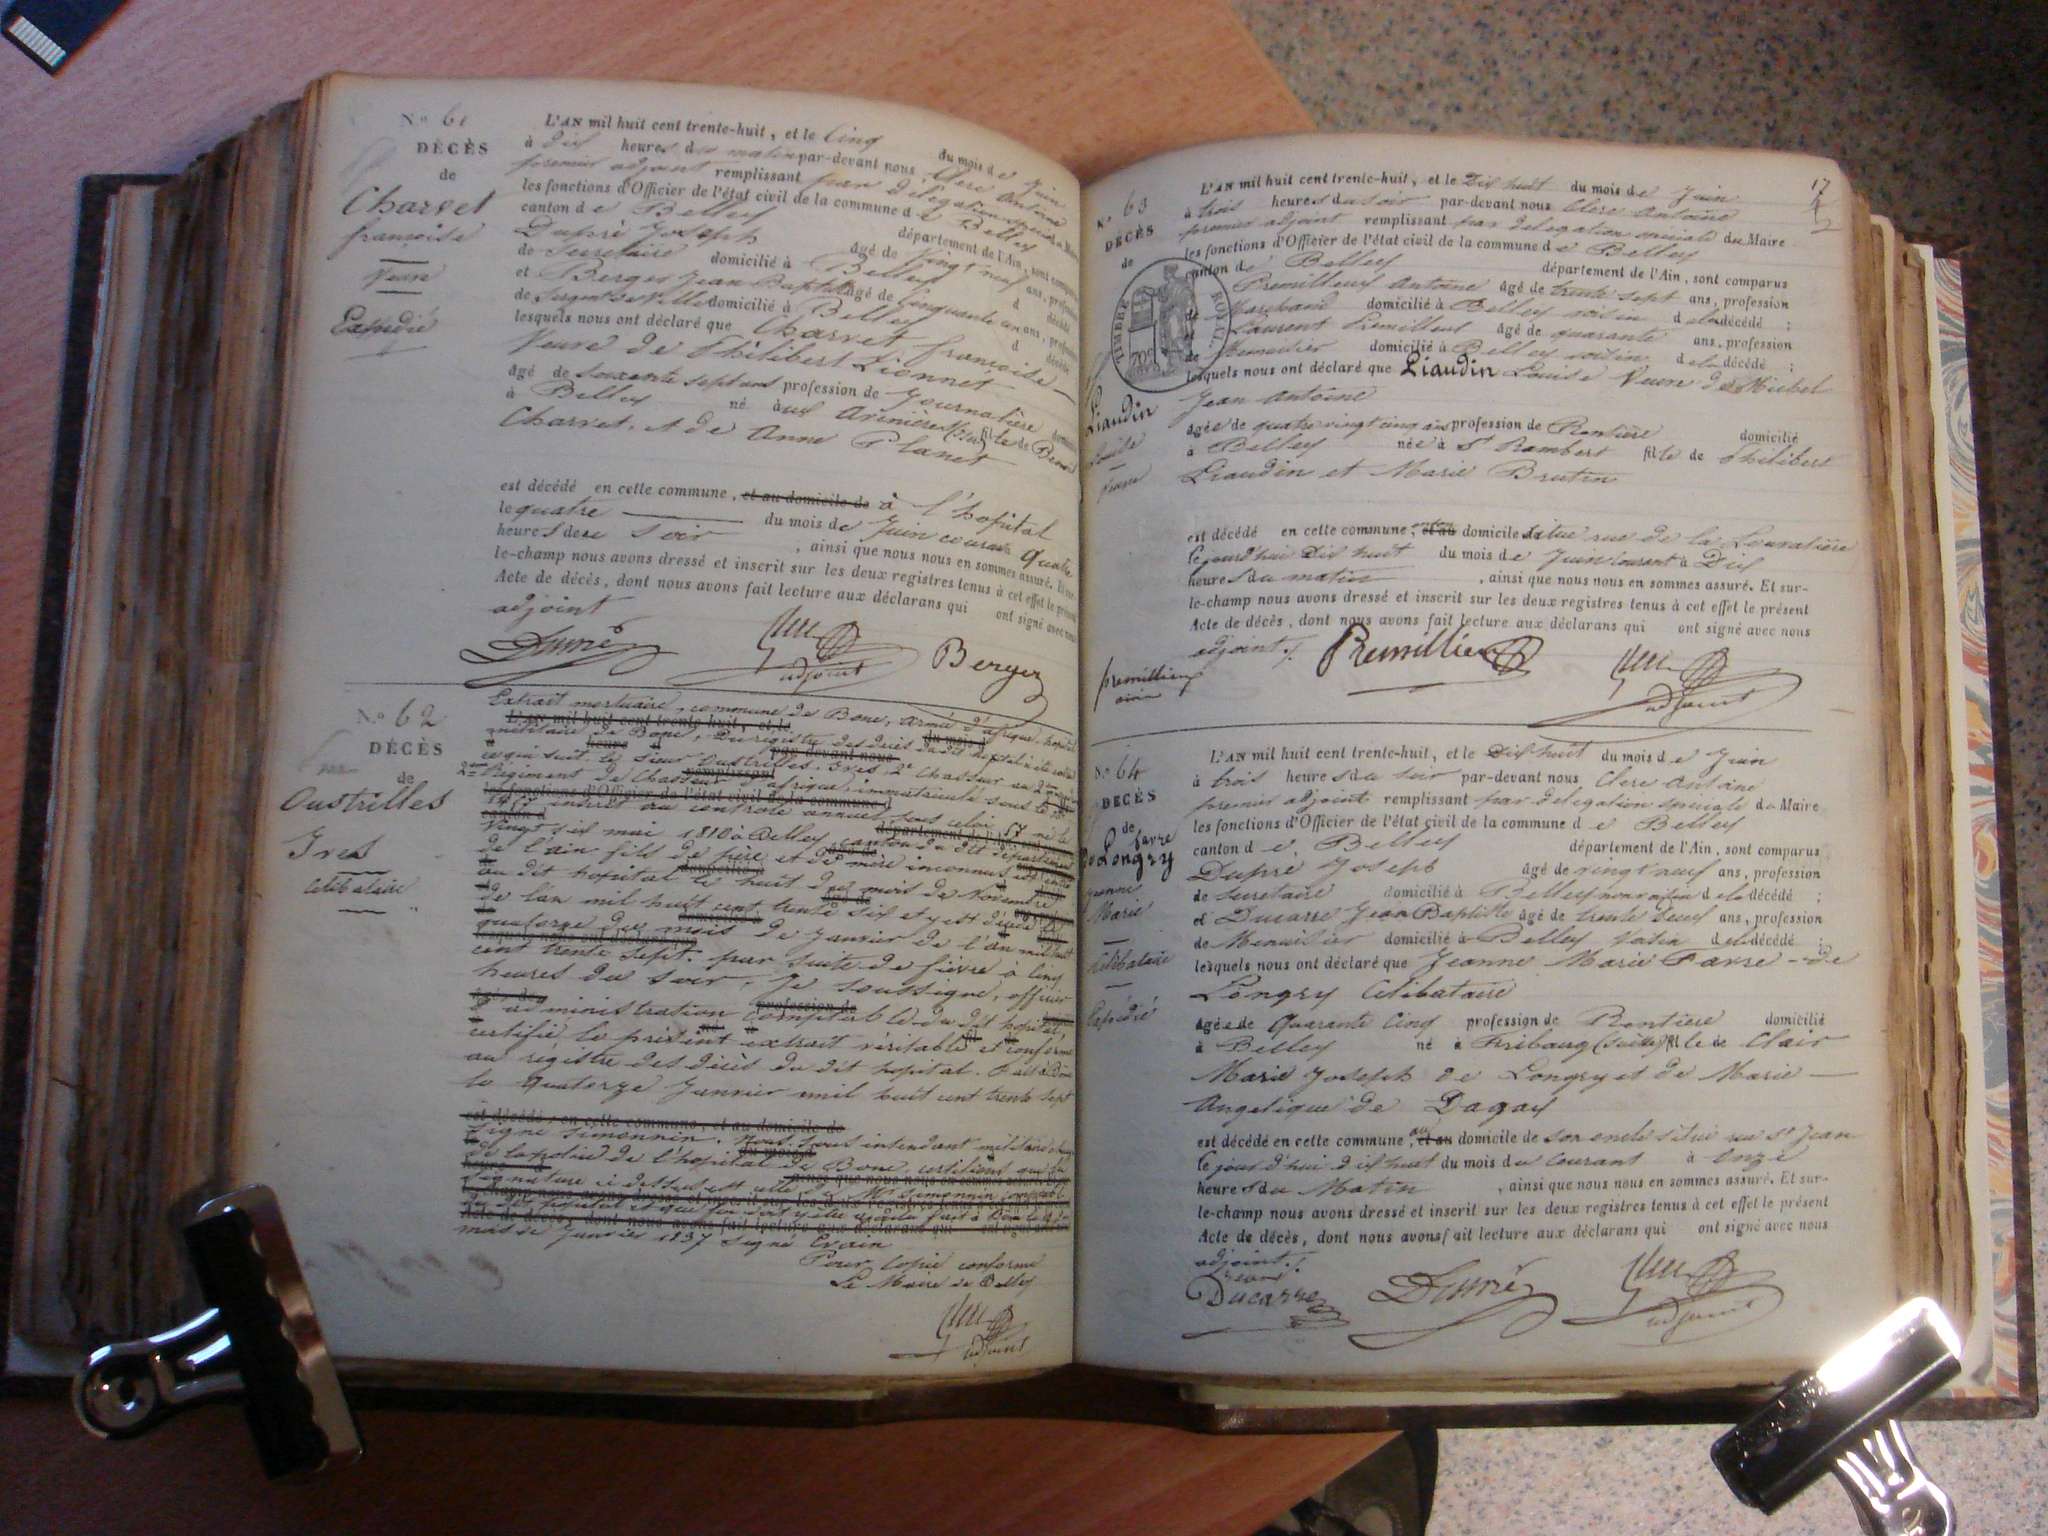 N.º 61
DÉCÈS
de
Charvet
françoise
Veuve
Expédié
L'AN mil huit cent trente-huit, et le Cinq du mois de Juin
à dix heures du matin par-devant nous Clerc Antoine
premier adjoint remplissant par délégation du Maire
les fonctions d'Officier de l'état civil de la commune de Belley
canton de Belley département de l'Ain, sont comparus
Dupré Joseph âgé de vingt neuf ans, profession
de Secretaire domicilié à Belley d décédé
et Berger Jean Baptiste âgé de Cinquante un ans, profession
de Sergent de Ville domicilié à Belley d décédé
lesquels nous ont déclaré que Charvet françoise
Veuve de Philibert Lionnet
âgé de soixante sept ans profession de Journalière domicilié
à Belley né à aux Avenières fille de Benoit
Charvet, et de Anne Planet
est décédé en cette commune, et au domicile de à l'hopital
le quatre du mois de Juin courant Quatre
heures du soir, ainsi que nous nous en sommes assuré. Et sur-
le-champ nous avons dressé et inscrit sur les deux registres tenus à cet effet le présent
Acte de décès, dont nous avons fait lecture aux déclarans qui ont signé avec nous
adjoint
Dupré Clerc adjoint Berger
N.º 62
DÉCÈS
de
Oustrilles
Ives
Célibataire
Extrait mortuaire, commune de Bone, armée d'afrique, hopital
militaire de Bone, Du registre des décès du dit hopital a été extrait
ce qui suit. le sieur Oustrilles Ives 2e Chasseur au
Régiment de Chasseurs d'afrique, immatriculé sous le no
1467 inscrit au controle annuel sous celui 57 né le
Vingt six mai 1810 à Belley canton du dit département
de l'ain fils de père et de mère inconnus est entré
au dit hopital le huit du mois de Novembre
de l'an mil huit cent trente six et y est décédé le
quatorze du mois de Janvier de l'an mil huit
cent trente sept. par suite de fièvre à cinq
heures du soir, Je soussigné, officier
d'administration comptable du dit hopital,
certifie le présent extrait véritable et conforme
au registre des décès du dit hopital. fait à Bone
le quatorze Janvier mil huit cent trente sept
signé Simonnin. Nous sous intendant militaire chargé
de la police de l'hopital de Bone certifions que la
signature ci dessus est celle de Mr Simonnin comptable
du dit hopital et que foi doit y être ajoutée fait à Bone le
mois de Janvier 1837 signé Evain
Pour Copie conforme
Le Maire de Belley
Clerc
adjoint
17
N.º 63
DÉCÈS
de
TIMBRE ROYAL
70c
Liaudin
Louise
Veuve
L'AN mil huit cent trente-huit, et le Dix huit du mois de Juin
à trois heures du soir par-devant nous Clerc Antoine
premier adjoint remplissant par délégation spéciale du Maire
les fonctions d'Officier de l'état civil de la commune de Belley
canton de Belley département de l'Ain, sont comparus
Premillieux Antoine âgé de trente sept ans, profession
de Marchand domicilié à Belley voisin de la décédé ;
Laurent Premillieux âgé de quarante ans, profession
de Menuisier domicilié à Belley voisin de la décédé ;
lesquels nous ont déclaré que Liaudin Louise Veuve de Michel
Jean Antoine
âgée de quatre vingt cinq ans profession de Rentière domicilié
à Belley née à St Rambert fille de Philibert
Liaudin et Marie Brutin
est décédé en cette commune, et au domicile situé rue de la
Cejourd'hui Dix huit du mois de Juin courant à Dix
heures du matin, ainsi que nous nous en sommes assuré. Et sur-
le-champ nous avons dressé et inscrit sur les deux registres tenus à cet effet le présent
Acte de décès, dont nous avons fait lecture aux déclarans qui ont signé avec nous
adjoint ./.
premillieux
ainé
Premillieux Clerc
adjoint
N.º 64
DÉCÈS
de
favre
De Longry
Jeanne
Marie
Célibataire
Expédié
L'AN mil huit cent trente-huit, et le Dix huit du mois de Juin
à trois heures du soir par-devant nous Clerc Antoine
premier adjoint remplissant par délégation spéciale du Maire
les fonctions d'Officier de l'état civil de la commune de Belley
canton de Belley département de l'Ain, sont comparus
Dupré Joseph âgé de vingt neuf ans, profession
de Secretaire domicilié à Belley non voisin de la décédé ;
et Ducarre Jean Baptiste âgé de trente deux ans, profession
de Menuisier domicilié à Belley Voisin de la décédé ;
lesquels nous ont déclaré que Jeanne Marie Favre - de
Longry Célibataire
âgée de Quarante Cinq profession de Rentière domicilié
à Belley né à Fribourg (Suisse) fille de Clair
Marie Joseph de Longry et de Marie
Angelique de Dagay
est décédé en cette commune, au et au domicile de son oncle situé rue St Jean
Ce jourd'hui dix huit du mois du courant à Onze
heures du Matin, ainsi que nous nous en sommes assuré. Et sur-
le-champ nous avons dressé et inscrit sur les deux registres tenus à cet effet le présent
Acte de décès, dont nous avons fait lecture aux déclarans qui ont signé avec nous
adjoint ./.
Jean
Ducarre Dupré Clerc
adjoint